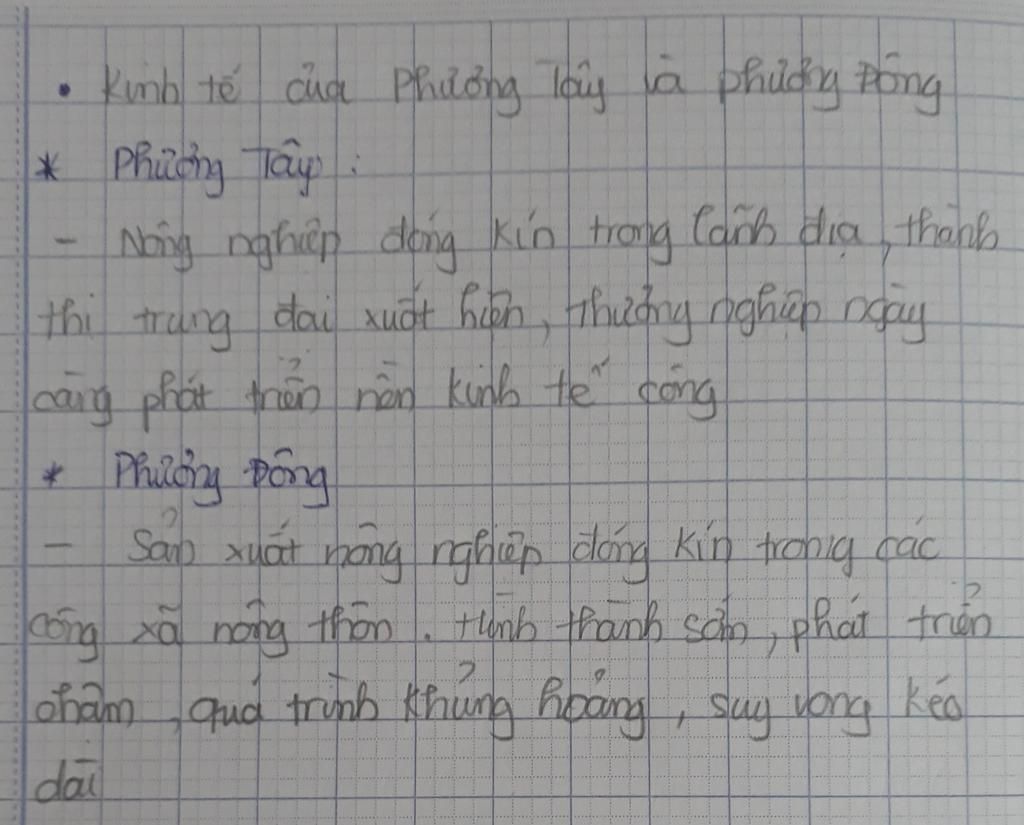 • Kinh tế của Phương Tây và phương Đông
* Phương Tây :
- Nông nghiệp đóng kín trong lãnh địa, thành
thị trung đại xuất hiện, thương nghiệp ngày
càng phát triển nền kinh tế công
* Phương Đông
- Sản xuất nông nghiệp đóng kín trong các
công xã nông thôn. Hình thành sớm, phát triển
chậm, quá trình khủng hoảng, suy vong kéo
dài